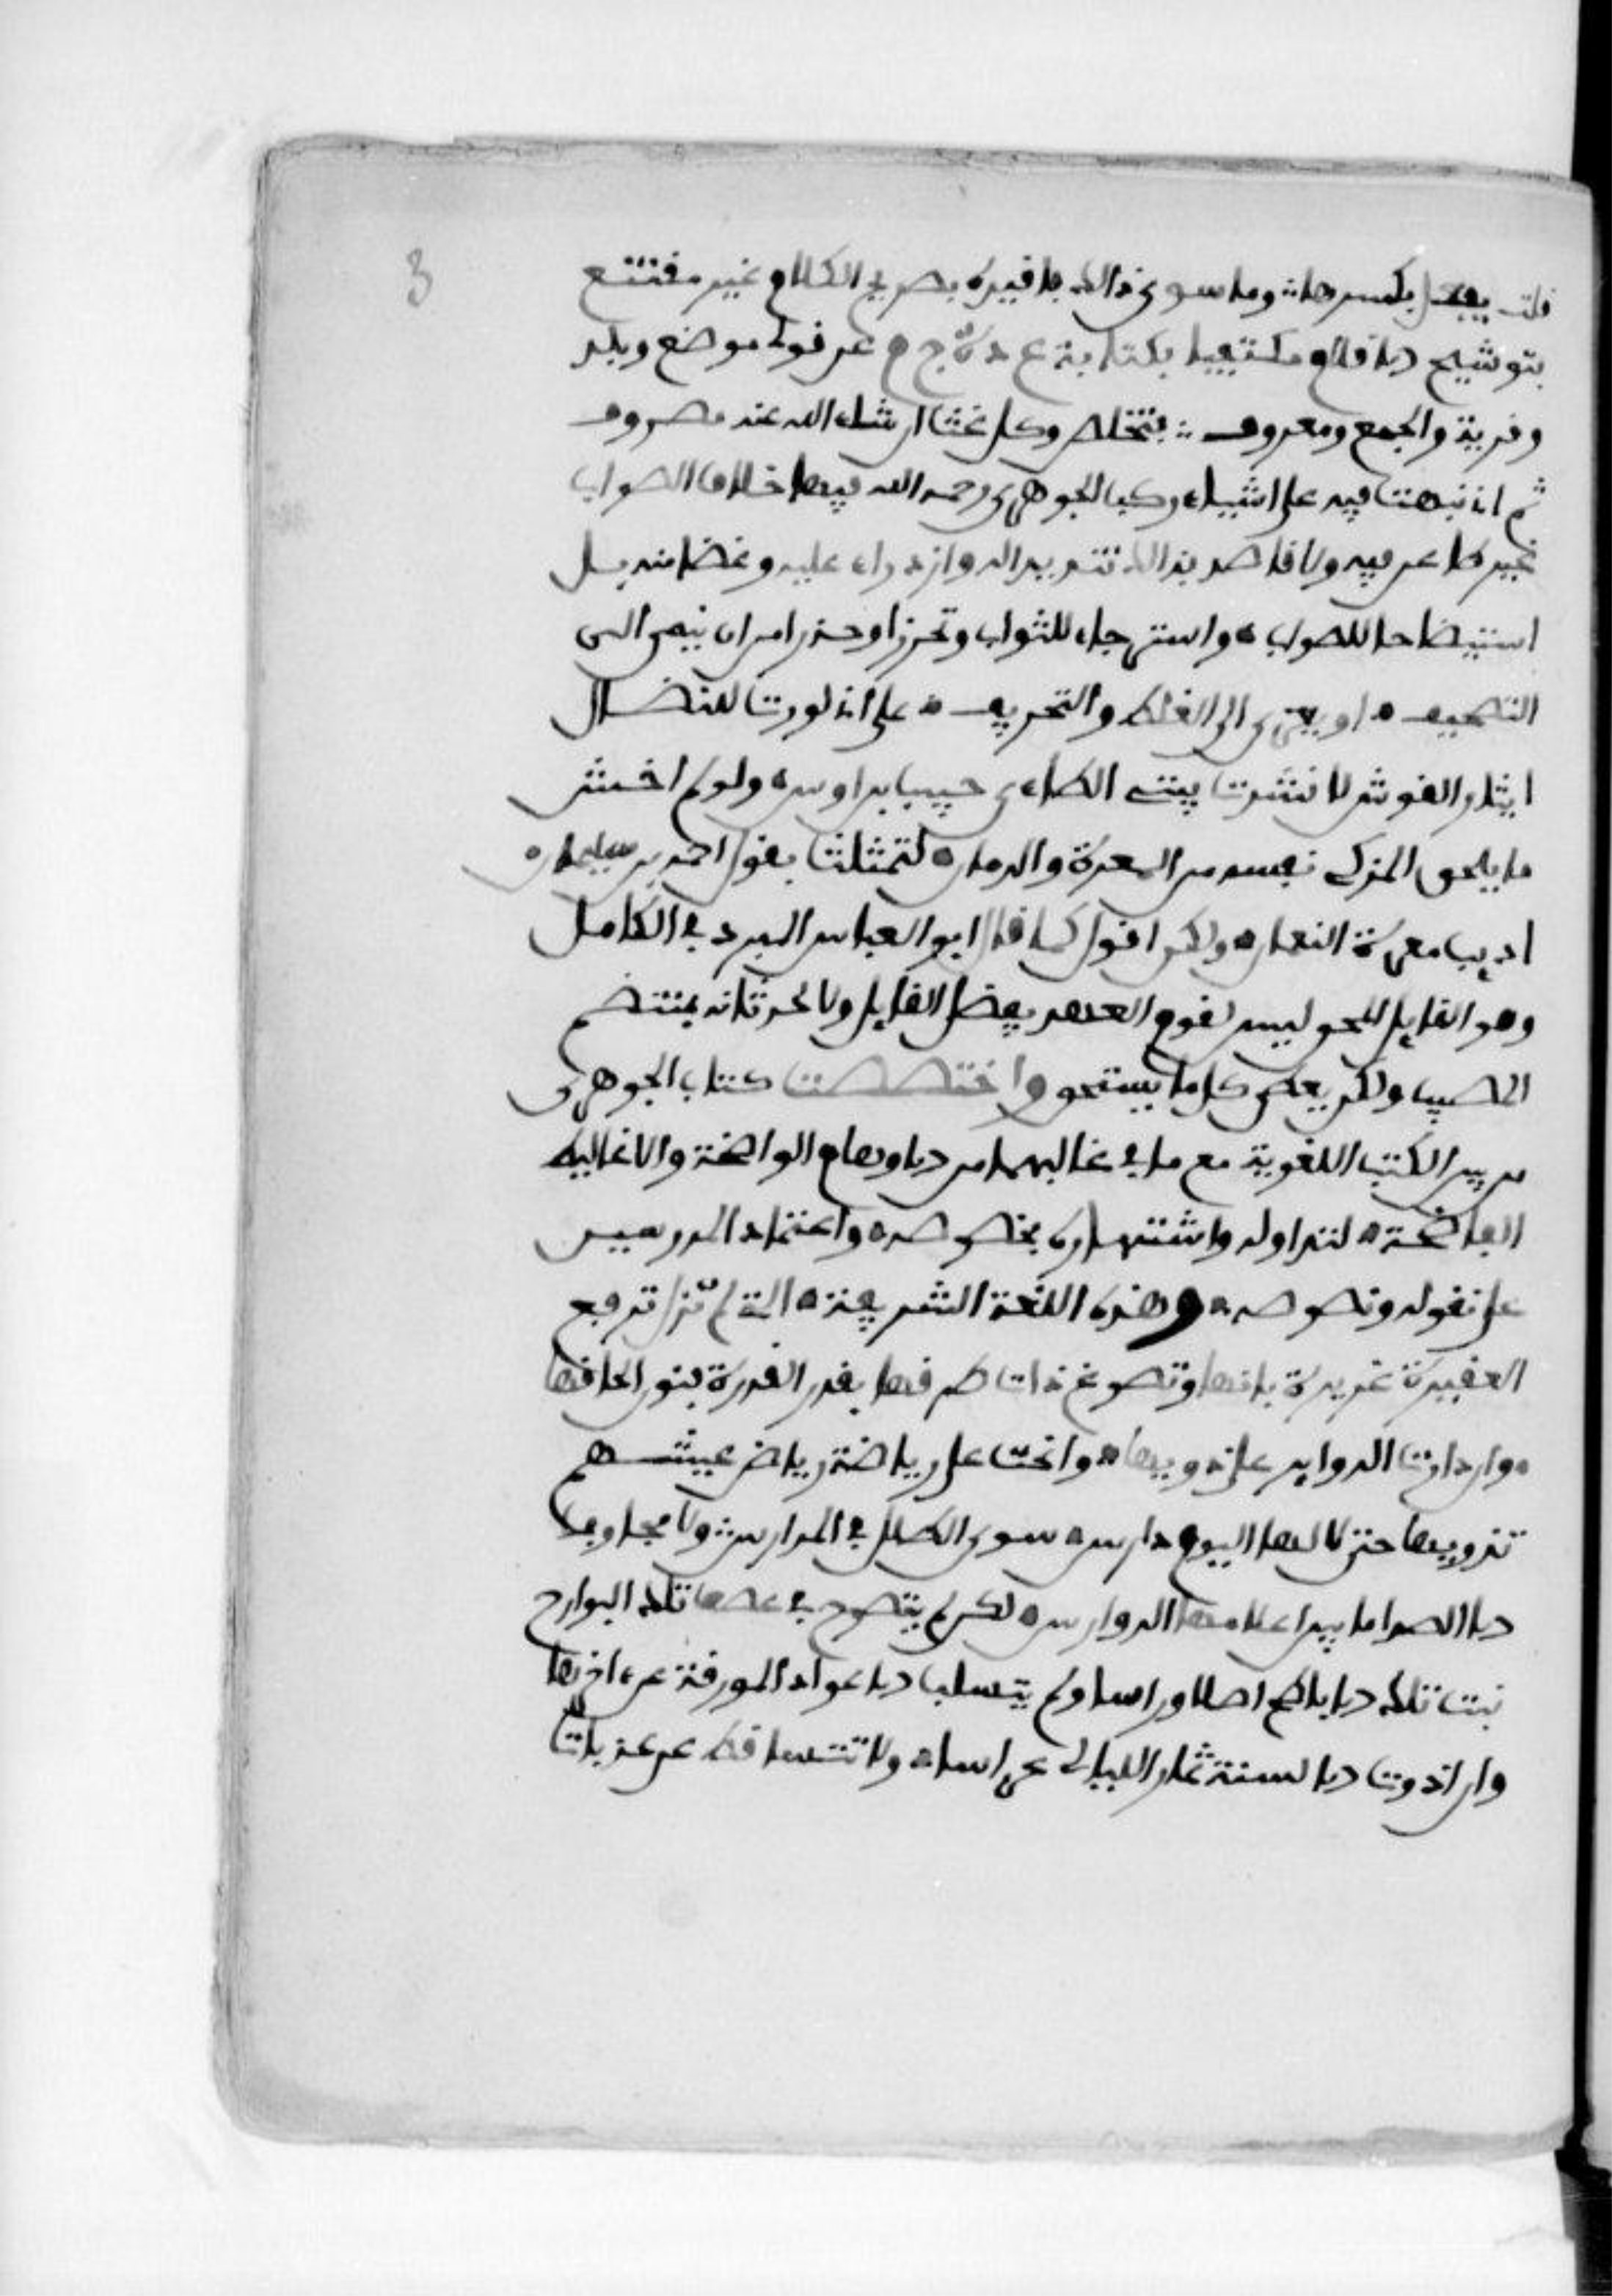 3
قلت يفعل بكسرها وما سوى ذالك فاقيده بصريح الكلام غير مقتنع
بتوشيح القلام مكتفيا بكتابة ع د ة ج م عن قولي موضع وبلد
وقرية والجمع ومعروف فتخلص وكل غث ان شاء الله عنه مصروف
ثم اني نبهت فيه على اشياء ركب الجوهرى رحمه الله فيها خلاف الصواب
غير طاعن فيه ولا قاصد بذالك تنديدا له وازدراء عليه وغضا منه بل
استيضاحا للصواب واسترجاء للثواب وتحرزا وحذرا من ان ينمى الى
التصحيف او يعزى الى الغلط والتحريف على اني لو رمت للنضال
ايتار القوس لانشدت بيتي الطاءى حبيب بن اوس ولو لم اخش
ما يلحق المزكى نفسه من المعرة والدمان لتمثلت بقول احمد بن سليمان
اديب معرة النعمان ولكن اقول كما قال ابو العباس المبرد في الكامل
وهو القايل المحق ليس لقدم العهد يفضل القايل ولا لحدثانه يهتضم
المصيب ولكن يعطى كل ما يستحق واختصصت كتاب الجوهرى
من بين الكتب اللغوية مع ما في غالبها من الاوهام الواضحة والاغاليط
الفاضحة لتداوله واشتهاره بخصوصه واعتماد المدرسين
على نقوله ونصوصه وهذه اللغة الشريفة التي لم تزل ترفع
العقيرة غريدة بانها وتصوغ ذات طوقها بقدر القدرة فنون الحانها
وان دارت الدواير على ذويها واخنت على رياضة رياض عيشهم
تذويها حتى لا لها اليوم دارس سوى الطلل في المدارس ولا مجاوب
الا الصدا ما بين اعلامها الدوارس لكن لم يتصوح في عصف تلك البوارح
نبت تلك الاباطح اصلا وراسا ولم يتسلب الاعواد المورقة عن اخرها
وان اذوت الالسنة ثمار الليالي غراسا ولا تتساقط عن عذبات